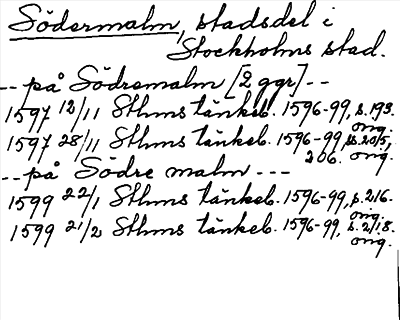 Södermalm, stadsdel i
Stockholms stad.
-- på Södremalm [2 ggr] --
1597 13/11 Sthms tänkeb. 1596-99, s. 193.
orig.
1597 28/11 Sthms tänkeb. 1596-99, s. 205,
206. orig.
-- på Södre malm ---
1599 22/1 Sthms tänkeb. 1596-99, s. 216.
orig.
1599 21/2 Sthms tänkeb. 1596-99, s. 218.
orig.